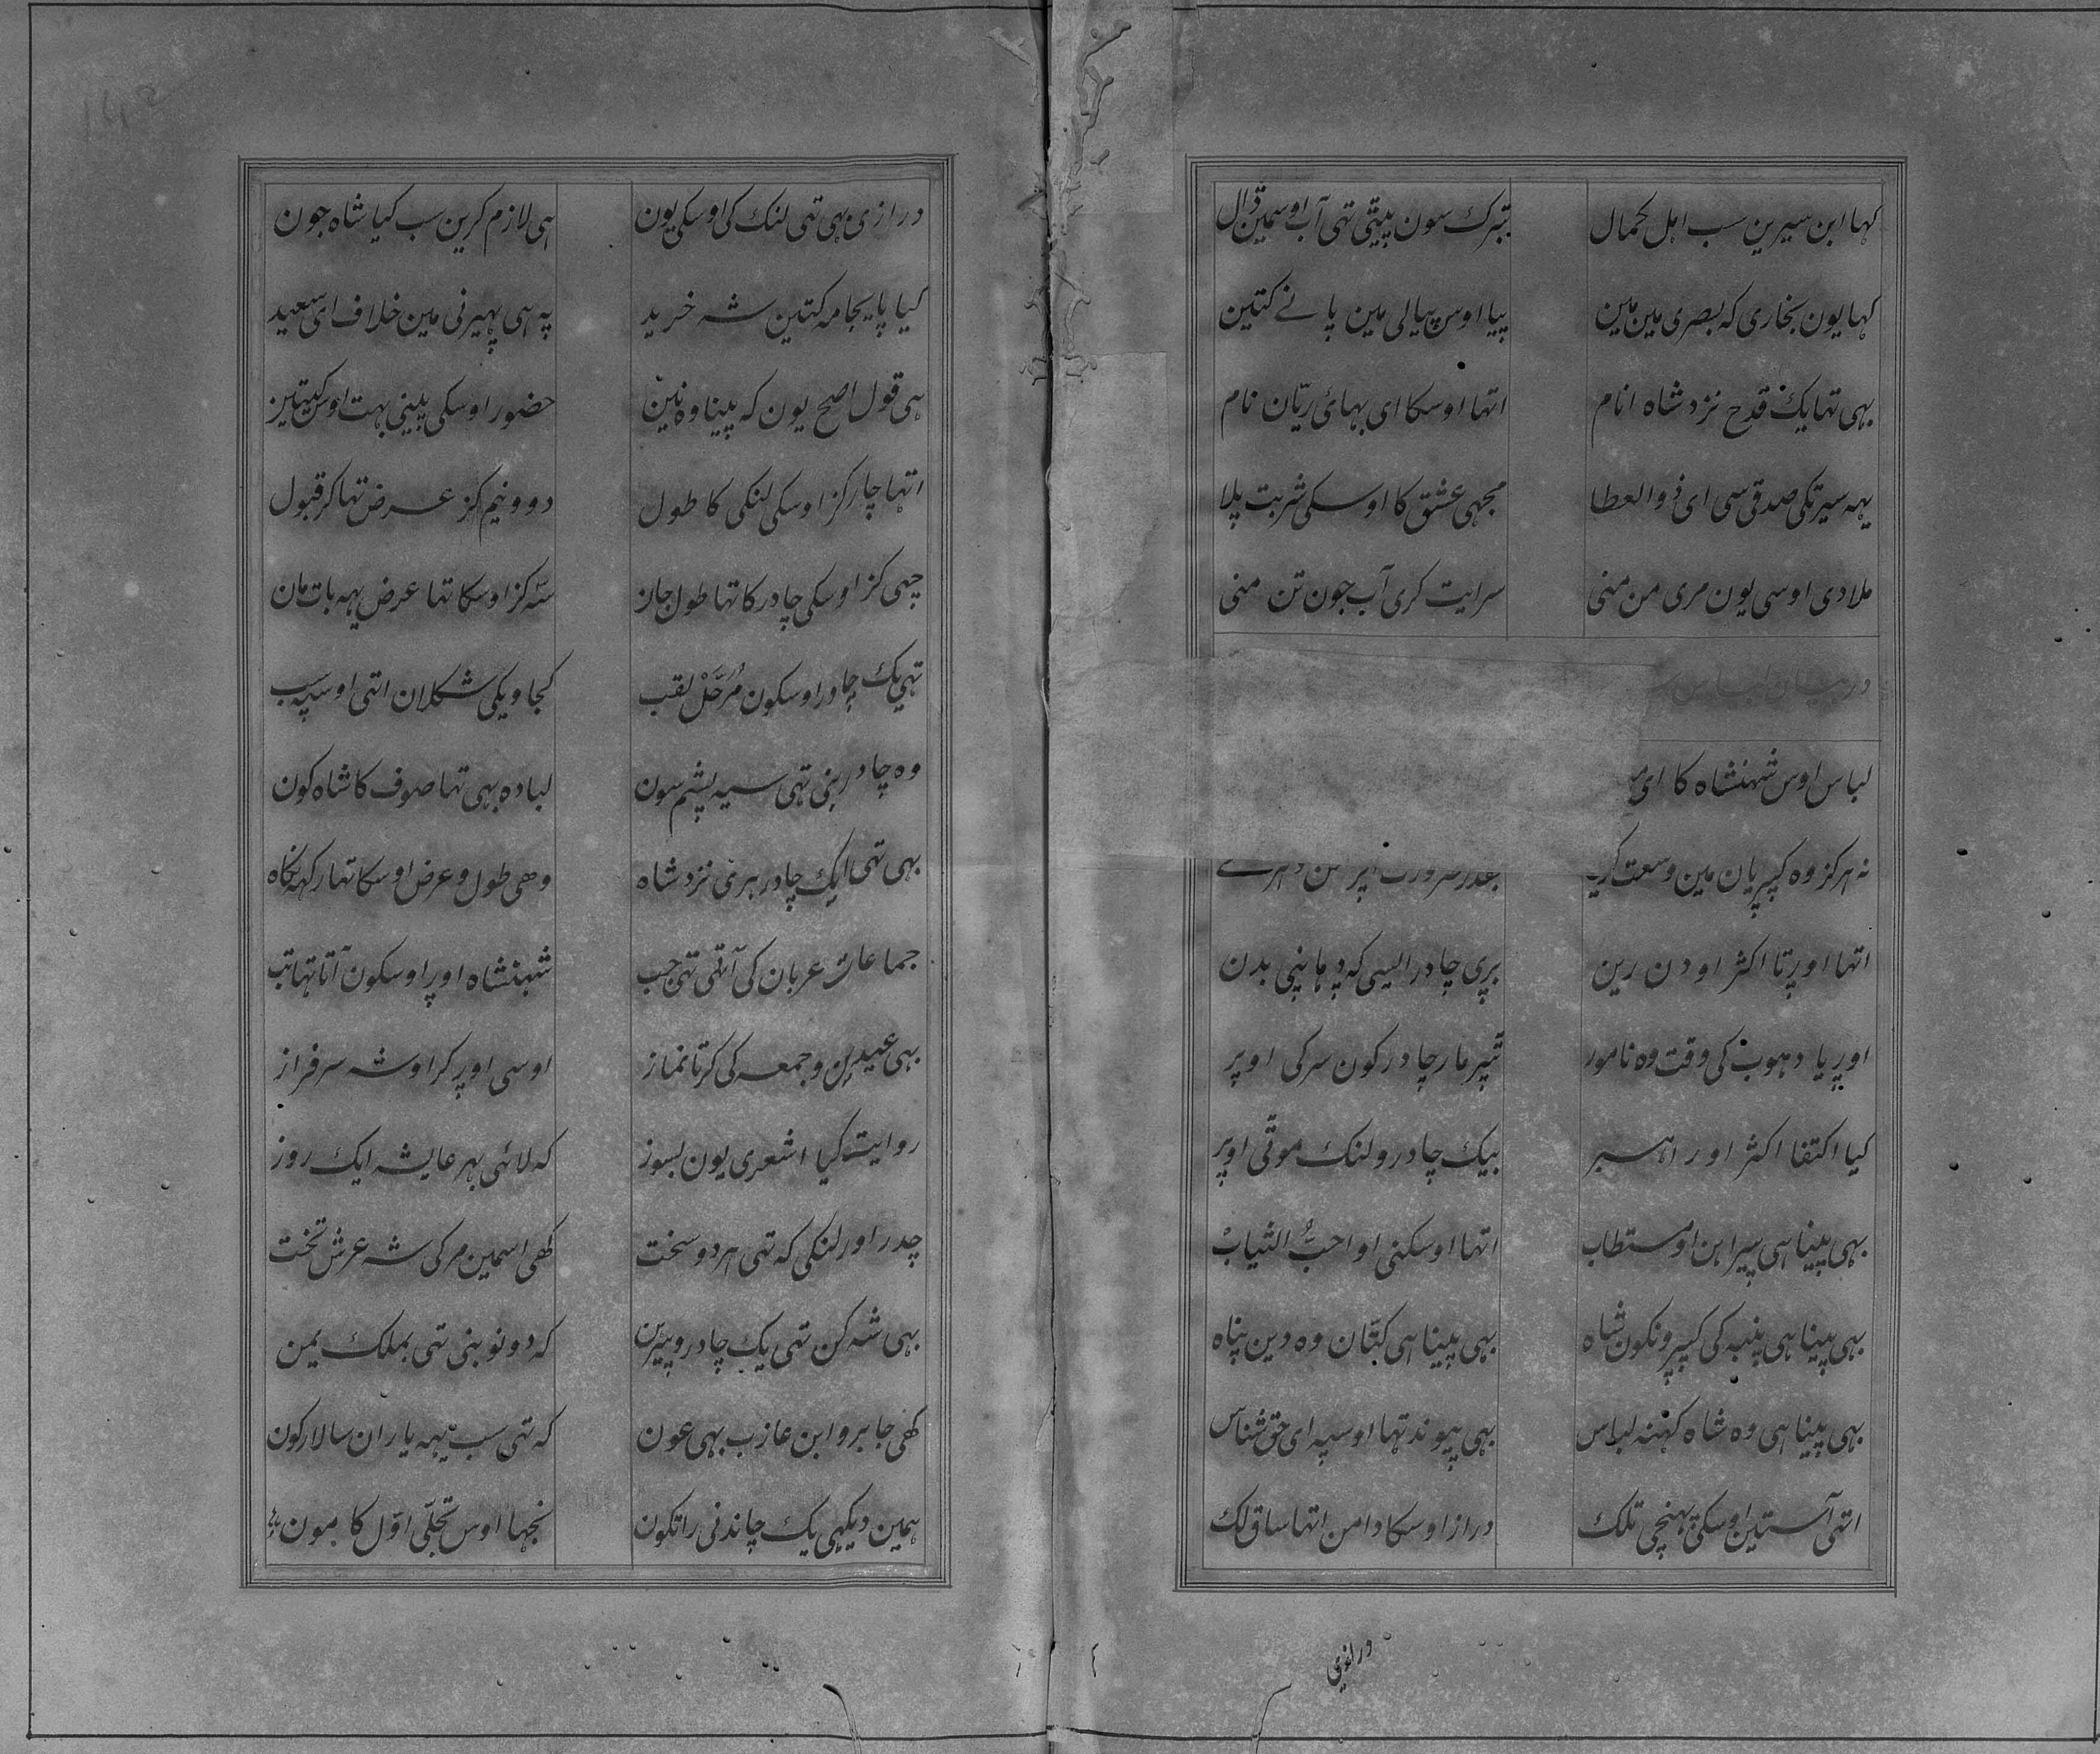 کہا ابن سیرین سب اہل کمال تبرک سون پیتی تہی آب اوسمین ڈال
کہا یون بخاری کہ بصری مین مین پیا اوس پیالی مین پانے کتین
بہی تہا یک قدح نزد شاہ انام اتہا اوسکا ای بہائ ریّان نام
یہہ سیرتکی صدقی سی ای ذو العطا مجہی عشق کا اوسکی شربت پلا
ملادی اوسی یون مری من منی سرایت کری آب جون تن منی
در بیان لباس
لباس اوس شہنشاہ کا ای
نہ ہرگز وہ کپریان مین وسعت کری بقدر ضرورت پر تن دہرے
اتہا اورتا اکثر او دن رین بری چادر ایسی کہ دہانپی بدن
اوریا دہوب کی وقت وہ نامور تپر مار چادر کون سر کی اوپر
کیا اکتفا اکثر اور اہبر بیک چادر و لنگ موٹی اوپر
بہی پینا ہی پیراہن او مستطاب اتہا اوسکنی او احبُّ الثیابْ
بہی پینا ہی پنبہ کی کپرونکون شاہ بہی پینا ہی کتّان وہ دین پناہ
بہی پینا ہی وہ شاہ کہنہ لباس بہی پیوند تہا اوسپہ ای حق شناس
اتہی آستین اوسکی پہنچی تلک دراز اوسکا دامن اتہا ساق لک
درازی
درازی بہی تہی لنگ کی اوسکی یون ہی لازم کرین سب کیا شاہ جون
کیا پایجامہ کتین شہ خرید پہ ہی پہیرنی مین خلاف ای سعید
ہی قول اصح یون کہ پینا وہ نین حضور اوسکی پینی بہت اوس کیتین
اتہا چار گز اوسکی لنگی کا طول دو و نیم گز عرض تہا کر قبول
چہی گز اوسکی چادر کا تہا طول جان سہ گز اوسکا تہا عرض یہہ بات مان
تہی یک چادر اوسکون مُرَحَّلْ لقب کجاویکی شکلان اتہی اوسپہ سب
وہ چادر بنی تہی سیہ پشم سون لبادہ بہی تہا صوف کا شاہ کون
بہی تہی ایک چادر ہری نزد شاہ وھی طول و عرض اوسکا تہا رکہہ نگاہ
جماعات عربان کی آتی تہی جب شہنشاہ اوپر اوسکون آتا تہا تب
بہی عیدین و جمعہ کی کرتا نماز اوسی اوپر کر او شہ سرفراز
روایت کیا اشعری یون بسوز کہ لائی بہر عایشہ ایک روز
چدر اور لنگی کہ تہی ہر دو سخت کھی اسمین مرکی شہ عرش تخت
بہی شہ کن تہی یک چادر و پیرن کہ دونو بنی تہی بملک یمن
کھی جابر و ابن عازب بہی عون کہ تہی سب یہہ یاران سالار کون
ہمین دیکہی یک چاندنی راتکون نجہا اوس تجلّی اوّل کا مون